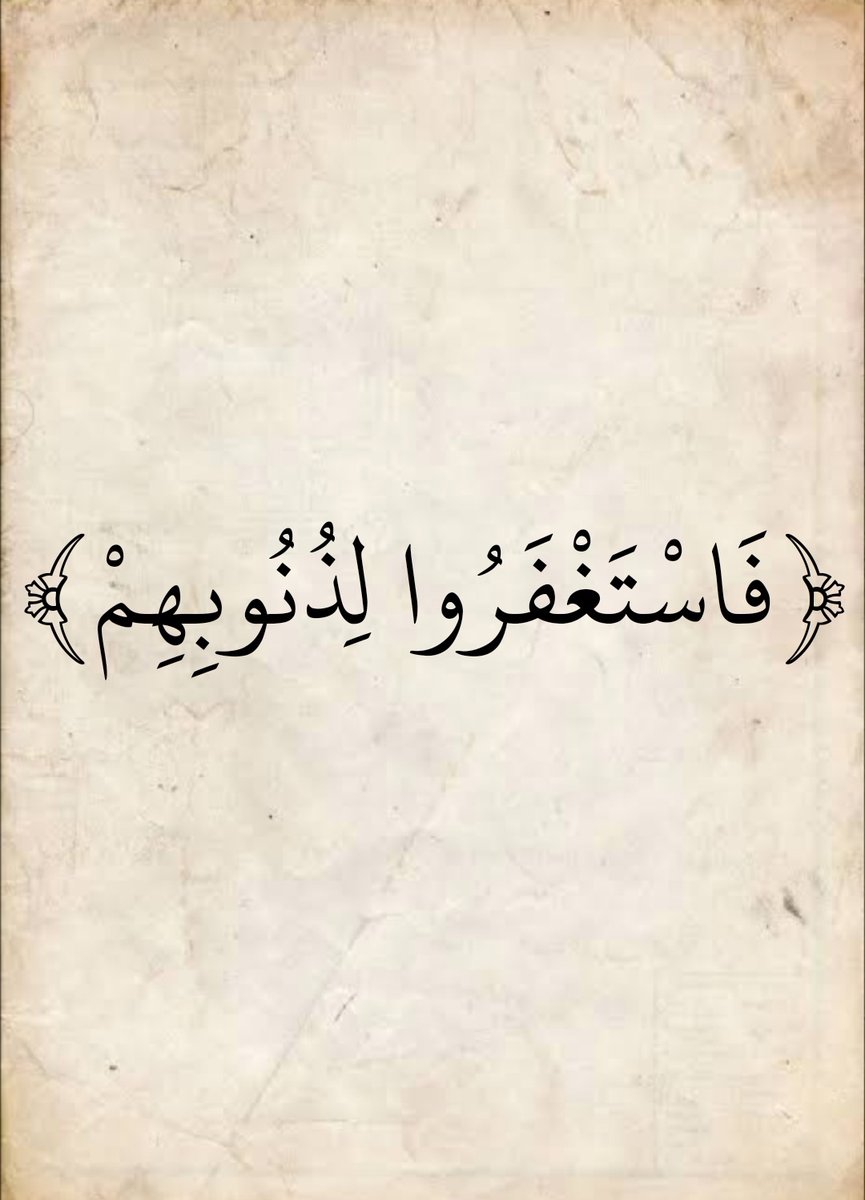 ﴿فَاسْتَغْفَرُوا لِذُنُوبِهِمْ﴾